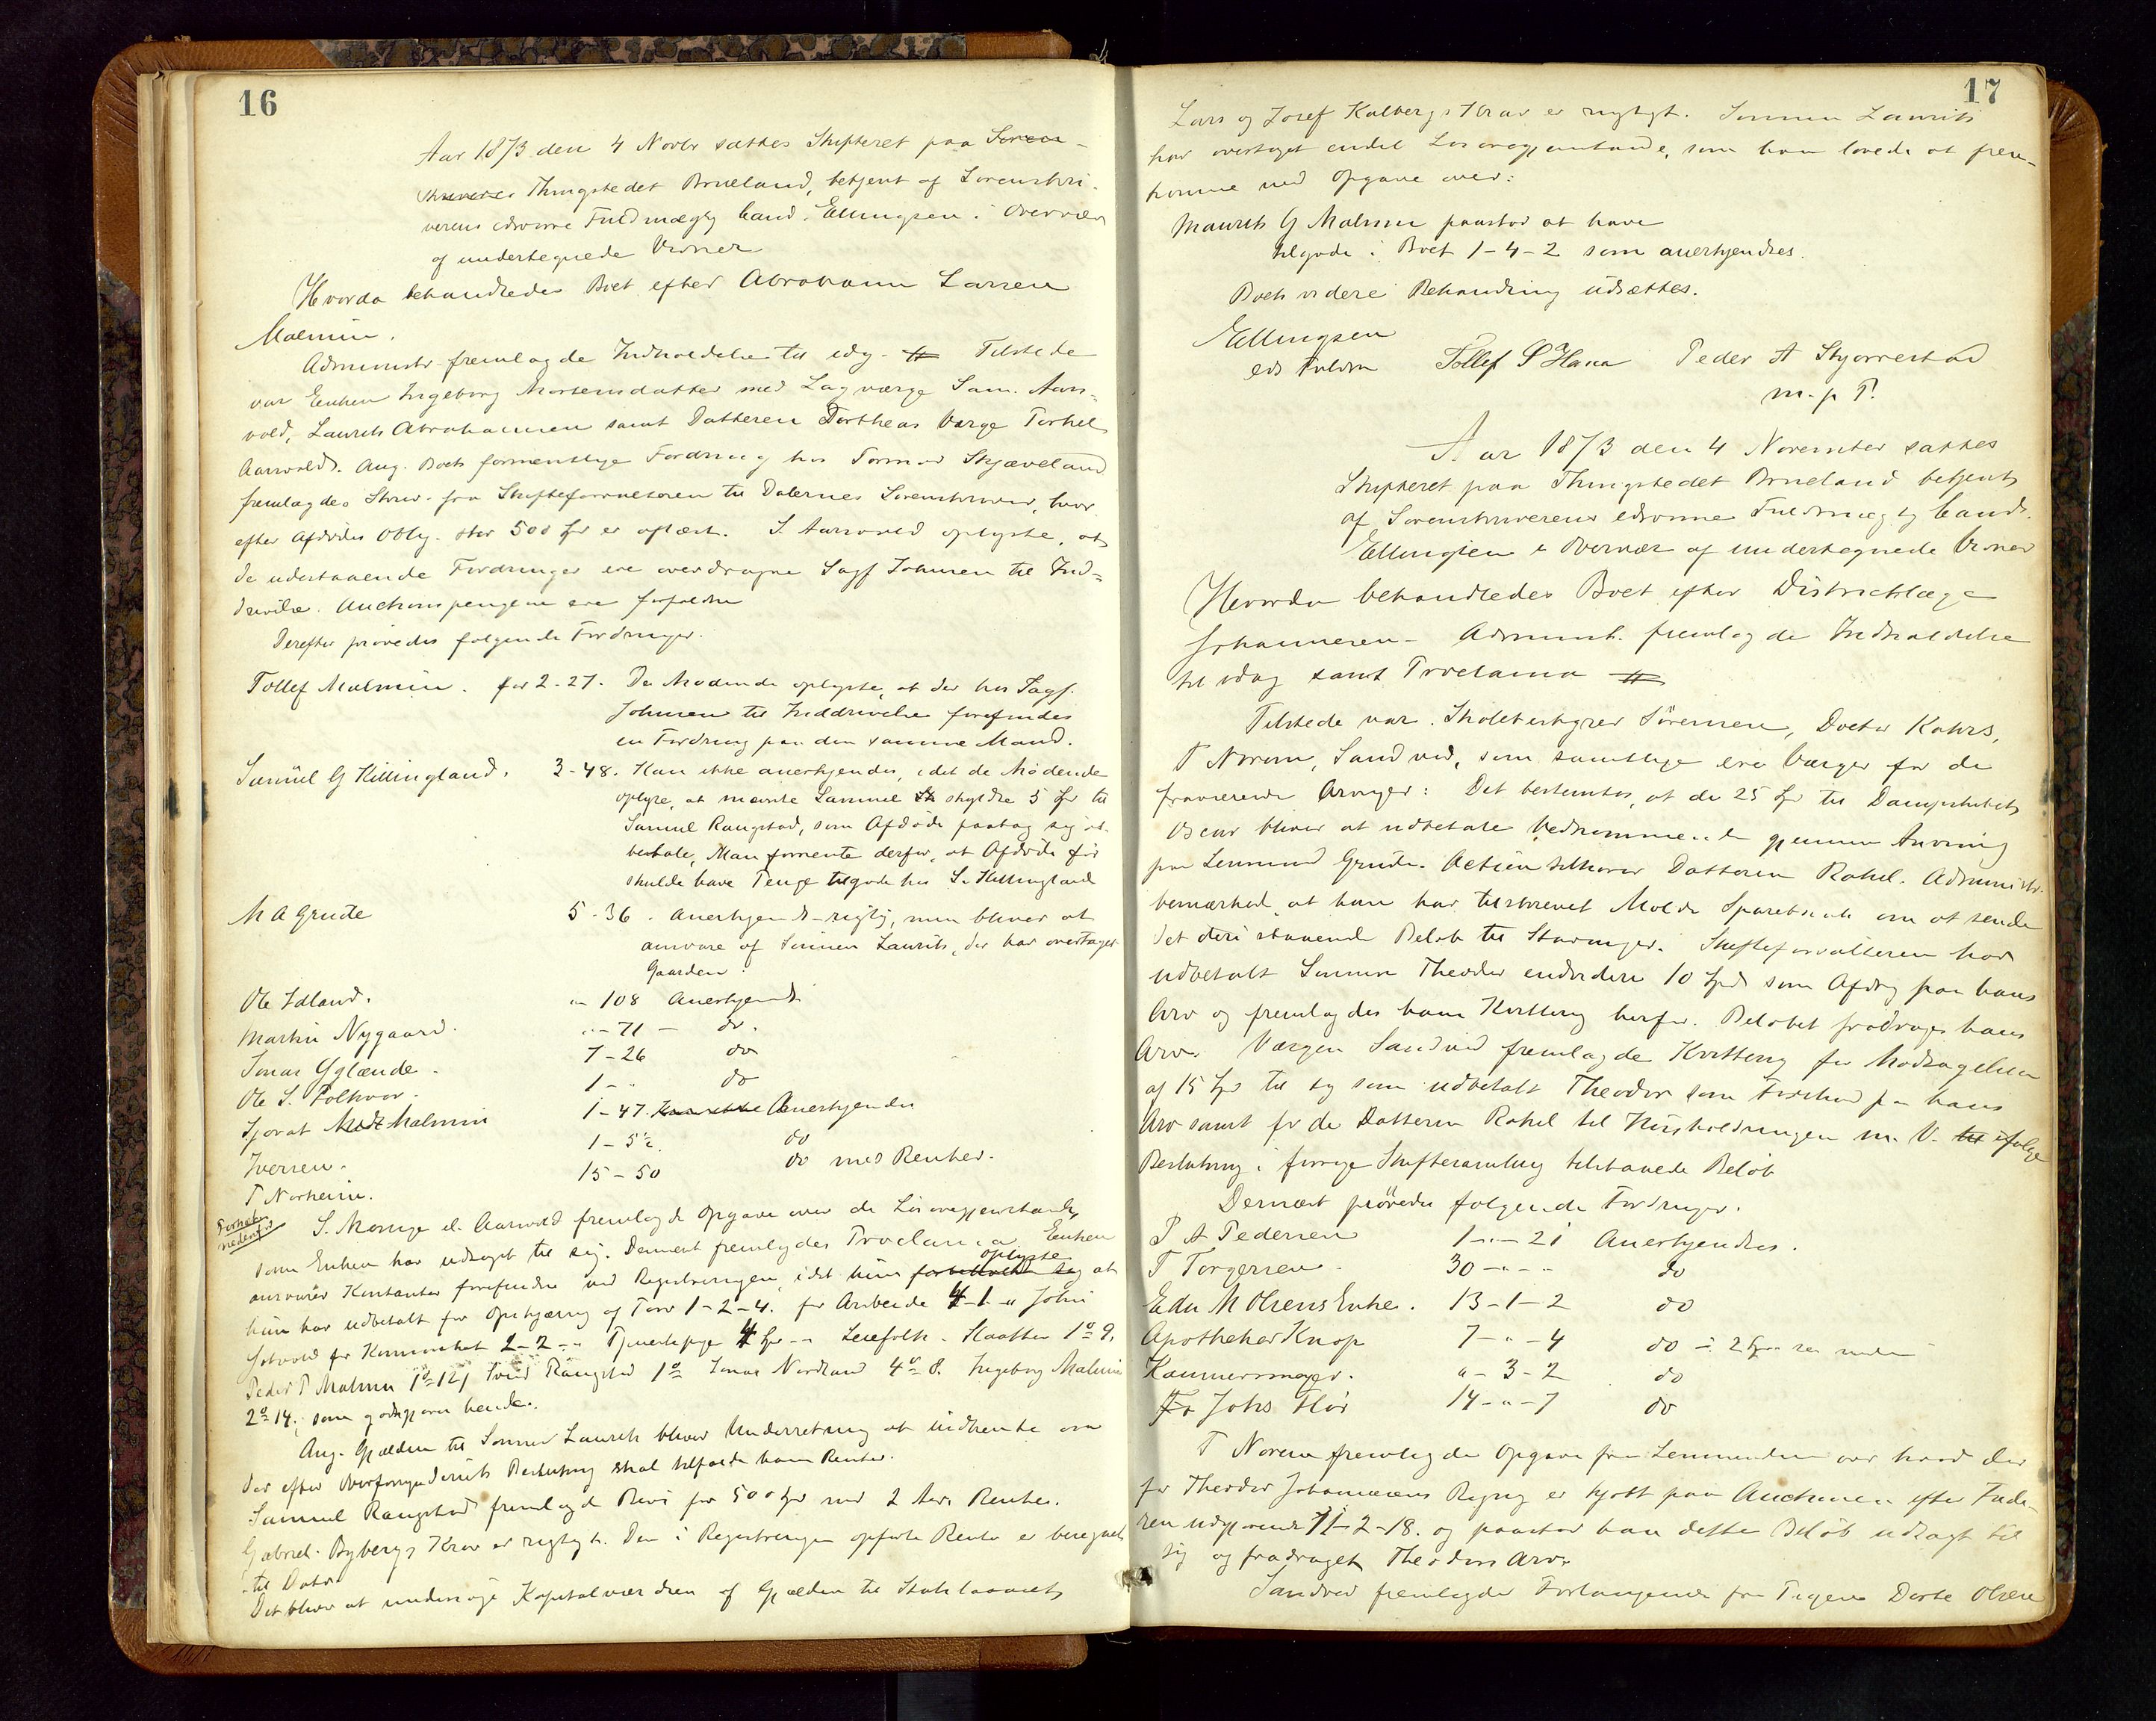 16
Aar 1873 den 4 Novbr sattes Skifteret paa Soren-
skriveres Thingstedet Brueland, betjent af Sorenskri-
verens edsvorne Fuldmægtig Cand. Ellingsen i Overvær
af undertegnede Vidner
Hvorda behandledes Boet efter Abraham Larsen
Malmin.
Administr fremlagde Indkaldelse til idag. # Tilstede
var Enken Ingeborg Mortensdatter med Lagværge Sam. Aars-
vold, Laurits Abrahamsen samt Datteren Dortheas Værge Torkel
Aarsvold. Ang. Boets formentlige Fordring hos Tormod Skjæveland
fremlagdes Skriv. fra Skifteforvalteren til Dalernes Sorenskriver, hvor
efter Afdødes Oblig. stor 500 Spd er aflæst. S. Aarsvold oplyste, at
de udestaaende Fordringer ere overdragne Sagf Johnsen til Ind-
drivelse. Auctionspengene ere forfaldne
Derefter prøvedes følgende Fordringer.
Tollef Malmin. for 2-27. De Mødende oplyste, at der hos Sagf.
Johnsen til Inddrivelse forefindes
en Fordring paa den samme Mand.
Samuel G Killingland. 3-48. Kan ikke anerkjendes, idet de Mødende
oplyse, at nævnte Samuel skyldte 5 Spd til
Samuel Rangstad, som Afdøde paatog sig at
betale, Man formente derfor, at Afdøde før
skulde have Penge tilgode hos S. Killingland
M A Grude 5-36. Anerkjendt rigtig, men bliver at
ansvare af Sønnen Laurits, der har overtaget
Gaarden.
Ole Idland. "- 108 Anerkjendt
Martin Nygaard. "- 71 - do.
Jonas Gjlænde. 7-26 do
Ole S. Folkvor. 1-" do
Sjovat Nedr Malmin 1-47. Kan ikke Anerkjendes
Iversen. 1-5½. do
T Norheim. 15-50 do med Renter.
nedenfor
S. Maunge el. Aarsvold fremlagde Opgave over de Løsøregjenstande,
som Enken har udtaget til sig. Dernæst fremlagdes Proclama. Enken
ansvarer Kontanter forefundne ved Registreringen, idet hun forbeholdt sig oplyste at
hun har udbetalt for Opskjæring af Torv 1-2-4. for Arbeide 4-1-" John
for 2-2-" Tjenestepige 4 Spd-" Leiefolk. Slaatten 1o 9.
Peder T Malmin 1o 12, Rangstad 1o Jonas Nordland 4o 8. Ingeborg Malmin
2o 14; som godtgjøres hende.
Ang. Gjælden til Sønnen Laurits bliver Underretning at indhente om
der efter Overformynderiets Beslutning skal tilfalde ham Renter.
Samuel Rangstad fremlagde Bevis for 500 Spd med 2 Aars Renter.
Gabriel Bybergs Krav er rigtigt. Den i Registreringen opførte Rente er beregnet
til Dato
Det bliver at undersøge Kapitalværdien af Gjælden til Enkekaaret
17
Lars og Josef Kalbergs Krav er rigtigt. Sønnen Laurits
har overtaget endel Løsøregjenstande, som han lovede at frem-
komme med Opgave over:
Maurits G Malmin paastod at have
tilgode i Boet 1-4-2 som anerkjendtes.
Boets videre Behandling udsættes.
Ellingsen
eds Fuldm Tollef P Hana Peder A Skjørrestad
m. p P.
Aar 1873 den 4 November sattes
Skifteret paa Thingstedet Brueland betjent
af Sorenskriverens edsvorne Fuldmægtig Cand.
Ellingsen i Overvær af undertegnede Vidner
Hvorda behandledes Boet efter Districtslæge
Johannesen - Administ. fremlagde Indkaldelse
til idag samt Proclama #
Tilstede var. Skolebestyrer Sörensen, Doctor Kahrs,
T Norem, Sandved, som samtlige ere Værger for de
fraværende Arvinger: Det bestemtes, at de 25 Spd til Dampskibet
Oscar bliver at udbetale Vedkommende gjennem Anvisning
paa Lensmand Grude. Actien tilhører Datteren Rakel. Administr.
bemærked, at han har tilskrevet Molde Sparebank om at sende
det deri staaende Beløb til Stavanger. Skifteforvalteren har
udbetalt Sønnen Theodor endvidere 10 Spd som Afdrag paa hans
Arv og fremlagdes hans Kvittering herfor. Beløbet fradrages hans
Arv. Værgen Sandved fremlagde Kvittering for Modtagelsen
af 15 Spd til sig som udbetalt Theodor som Forskud paa hans
Arv samt for de Datteren Rakel til Husholdningen m. V. til ifølge
Beslutning i forrige Skiftesamling tilstaaede Beløb
Dernæst prövedes følgende Fordringer.
P A Pedersen 1-"-21 Anerkjendtes.
T Torgersen. 30-"-" do
Edv M Olsens Enke. 13-1-2 do
Apotheker Knop 7-"-4 do
Kammersmayer. "-3-2 do
Fr Johs Flor 14-"-7 do
T Norem fremlagde Opgave fra Lensmanden over hvad der
for Theodor Johannesens Regning er kjøbt paa Auctionen efter Fade-
ren udgjørende 11-2-18. og paastod han dette Beløb udlagt til
sig og fradraget Theodors Arv.
Sandved fremlagde Forlangende fra Pigen Dorte Olsen